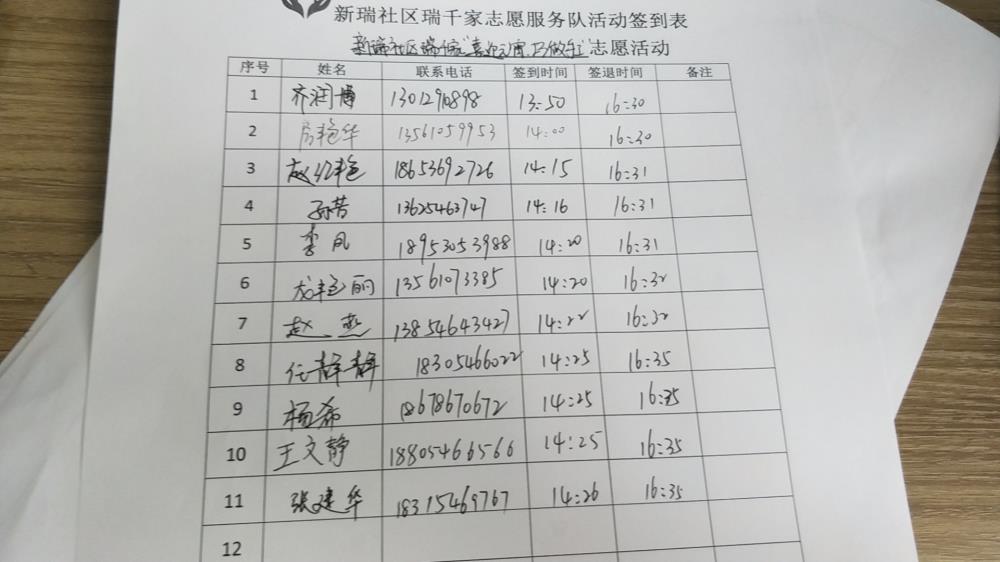 新瑞社区瑞千家志愿服务队活动签到表
新瑞社区瑞千家"喜迎元宵,巧做手工"志愿活动
序号 姓名 联系电话 签到时间 签退时间 备注
1 齐润博 1301290898 13:50 16:30
2 房艳华 13561059953 14:00 16:30
3 赵红艳 18653692726 14:15 16:31
4 孙芳 13625463747 14:16 16:31
5 李凤 18953053988 14:20 16:31
6 尤艳丽 13561073385 14:20 16:32
7 赵燕 13854643427 14:22 16:32
8 任静静 18305466022 14:25 16:35
9 杨希 18678670672 14:25 16:35
10 王文静 18805466566 14:25 16:35
11 张建华 18315469767 14:26 16:35
12